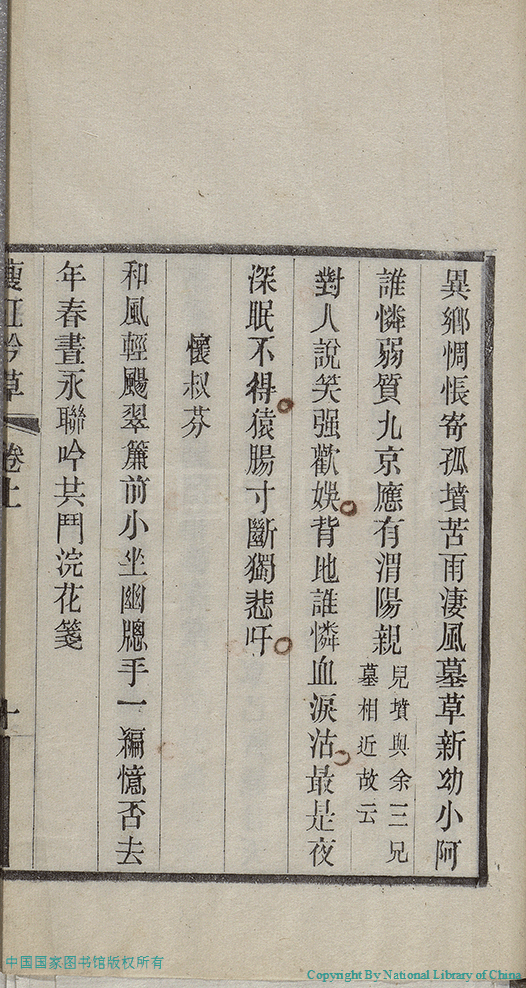 異鄉惆悵寄孤墳苦雨淒風墓草新幼小阿
誰憐弱質九京應有渭陽親兒墳與余三兄墓相近故云
對人說笑强歡娛背地誰憐血淚沽最是夜
深眠不得猿腸寸斷獨悲吁
懷叔芬
和風輕颺翠簾前小坐幽牕手一編憶否去
年春晝永聯吟共鬥浣花箋
瘦紅吟草 卷上 十
中国国家图书馆版权所有
Copyright By National Library of China